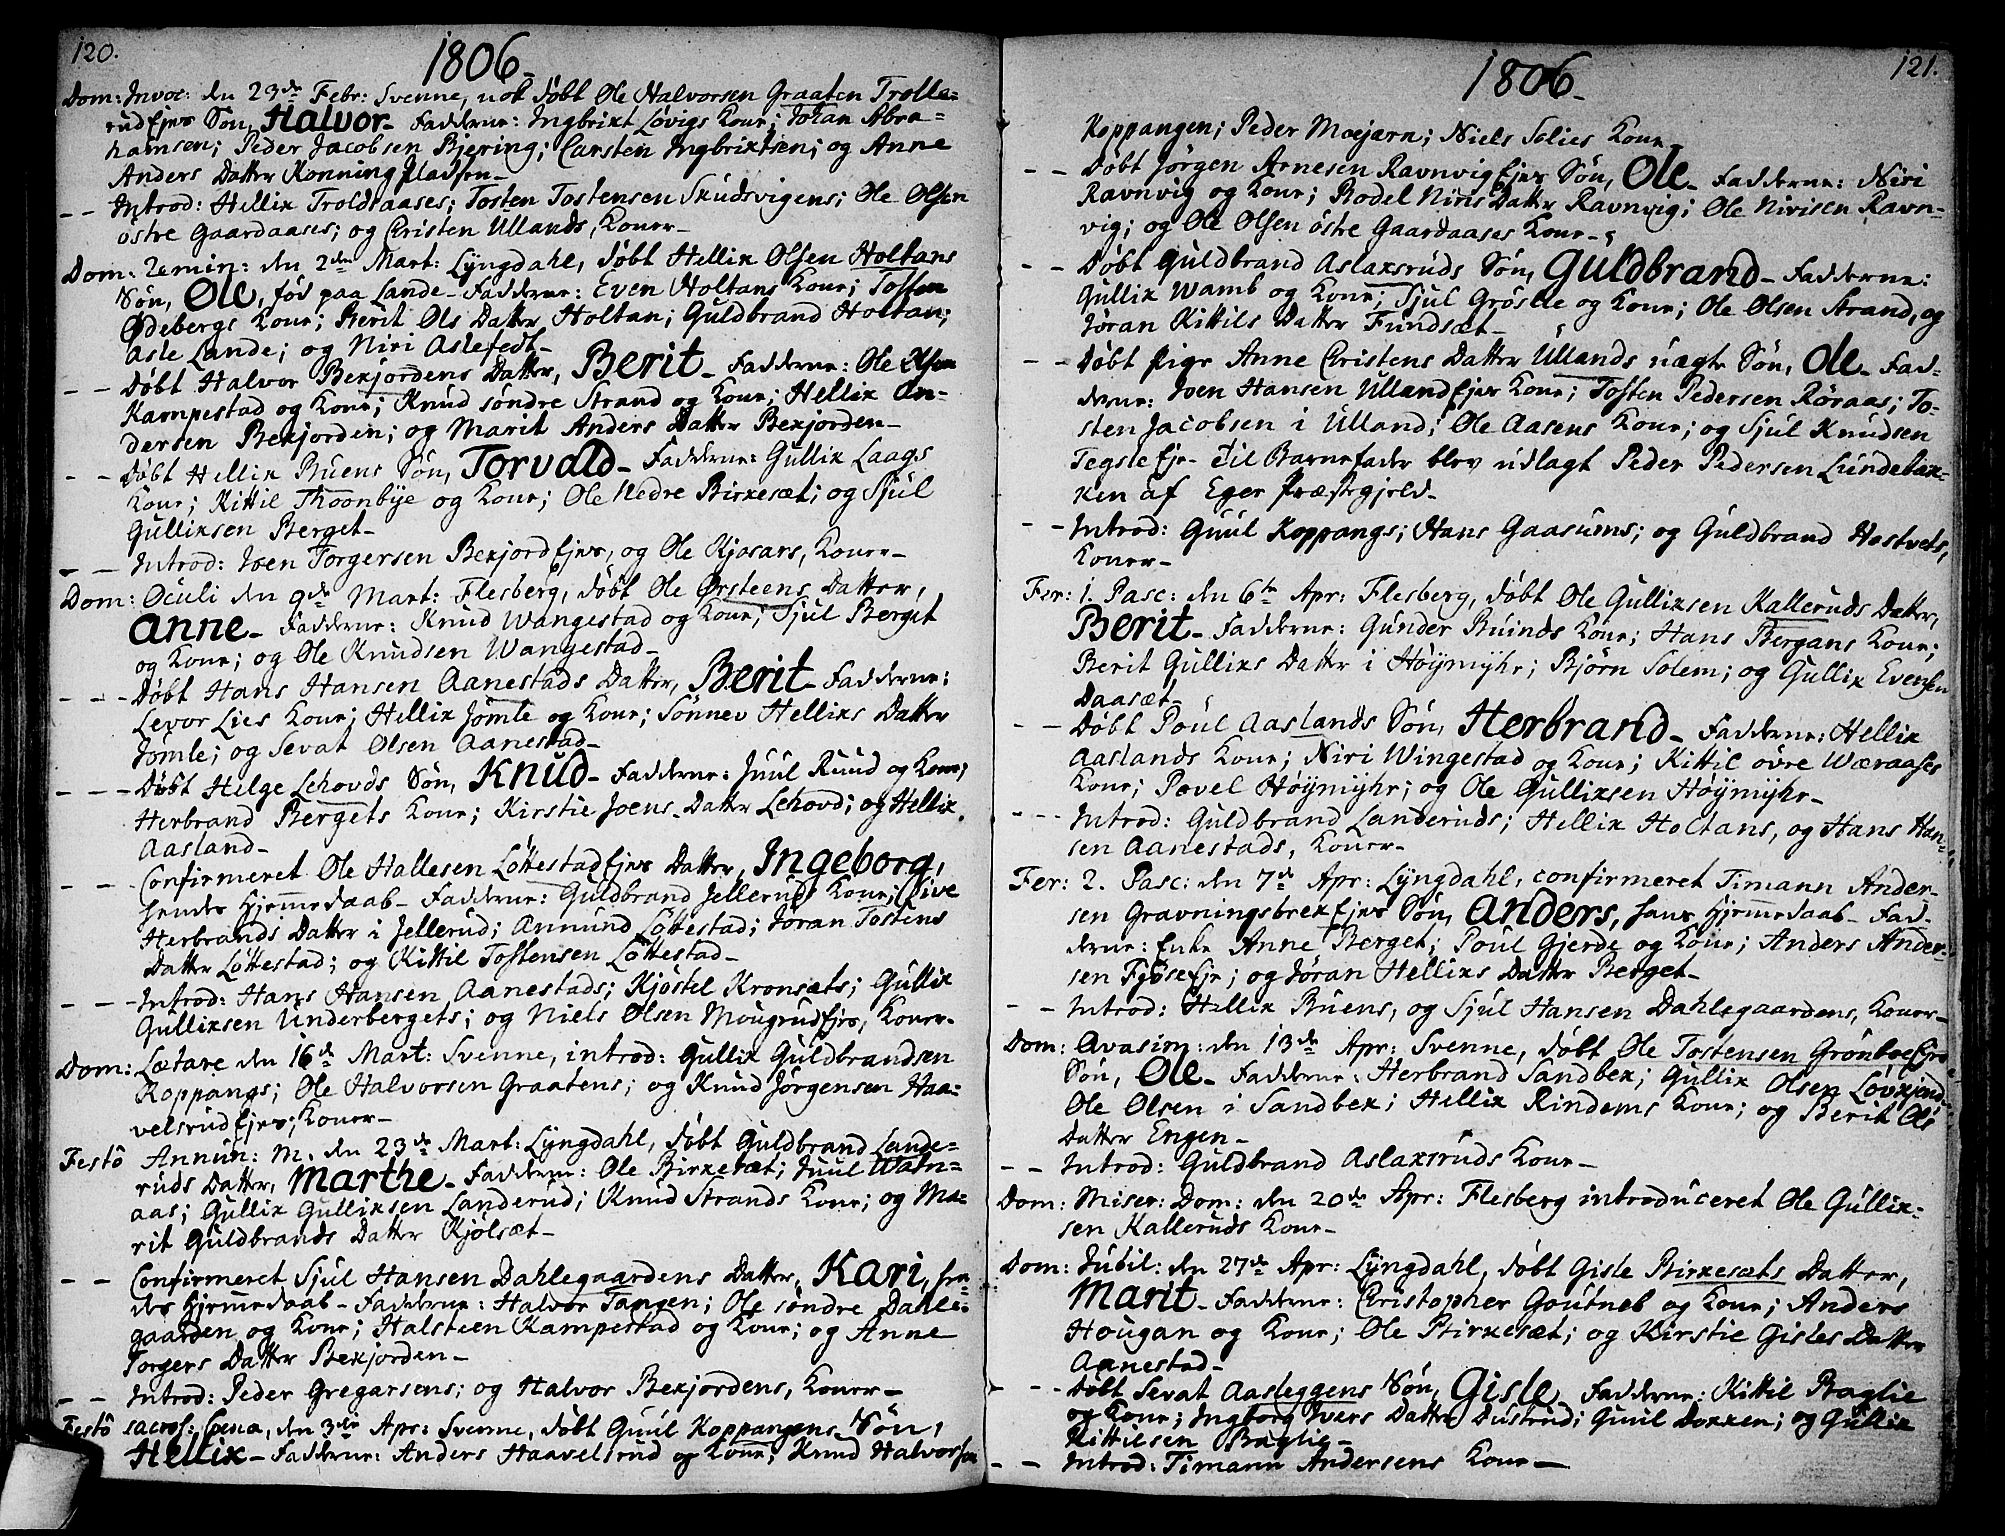 120.
1806.
Dom: Invoc: den 23de Febr: Svenne, døbt Ole Halvorsen Graaten Trolle-
rudEjes Søn, Halvor. Fadderne: Ingbrikt Løvigs Kone; Johan Abra-
hamsen; Peder Jacobsen Bjering; Carsten Ingbrixtsen; og Anne
Anders Datter KonningPladsen.
- - Introd: Hellix Troldaases; Tosten Tostensen Skudsvigens; Ole Olsen
østre Gaardaases; og Cristen Ullands, Koner.
Dom: Remin: den 2den Mart: Lyngdahl, døbt Hellix Olsen Holtans
Søn, Ole, fød paa Lande. Fadderne: Even Holtans Kone; Tosten
Ødebergs Kone; Berit Ols Datter Holtan; Guldbrand Holtan;
Asle Lande; og Niri Aslefedt.
- - Døbt Halvor Bexjordens Datter, Berit. Fadderne: Ole Olsen
Kampestad og Kone; Knud søndre Strand og Kone; Hellix An-
dersen Bexjorden; og Marit Anders Datter Bexjorden.
- - Døbt Hellix Buens Søn, Torvald. Fadderne: Gullix Laags
Kone; Kittil Thoonbye og Kone; Ole Nedre Birkesæt; og Sjul
Gullixsen Berget.
- - Introd: Joen Torgersen BexjordEjes, og Ole Kjosars, Koner.
Dom: Oculi den 9de Mart: Flesberg, døbt Ole Ørsteens Datter,
Anne. Fadderne: Knud Wangestad og Kone; Sjul Berget
og Kone; og Ole Knudsen Wangestad.
- - - Døbt Hans Hansen Aanestads Datter, Berit. Fadderne:
Levor Lies Kone; Hellix Jømle og Kone; Sønnev Hellixs Datter
Jømle; og Sevat Olsen Aanestad.
- - - Døbt Helge Lehovds Søn, Knud. Fadderne: Juul Ruud og Kone;
Herbrand Bergets Kone; Kirstie Joens Datter Lehovd; og Hellix
Aasland.
- - - Confirmeret Ole Hallesen LøttestadEjes Datter, Ingeborg,
hendes Hjemmedaab. Fadderne: Guldbrand Jellerud Kone; Live
Herbrands Datter i Jellerud; Amund Løttestad; Jøran Tostens
Datter Løttestad; og Kittil Tostensen Løttestad.
- - - Introd: Hans Hansen Aanestads; Kjøstel Kronsæts; Gullix
Gullixsen Underbergets; og Niels Olsen MougrudEjes, Koner.
Dom: Lætare den 16de Mart: Svenne, introd: Gullix Guldbrandsen
Koppangs; Ole Halvorsen Graatens; og Knud Jørgensen Haa-
velsrudEjes, Koner.
Festo Annun: M. den 23de Mart: Lyngdahl, døbt Guldbrand Lande-
ruds Datter, Marthe. Fadderne: Ole Birkesæt; Juul Watn-
aas; Gullix Gullixsen Landerud; Knud Strands Kone; og Ma-
rit Guldbrands Datter Kjølsæt.
- - Confirmeret Sjul Hansen Dahlegaardens Datter, Kari, hen-
des Hjemmedaab. Fadderne: Halvor Tangen; Ole søndre Dahle-
gaarden og Kone; Halsteen Kampestad og Kone; og Anne
Torgers Datter Bexjorden.
- - Introd: Peder Gregarsens; og Halvor Bexjordens, Koner.
Festo sacros: Coena, den 3die Apr: Svenne, døbt Guul Koppangens Søn,
Hellix. Fadderne: Anders Haavelsrud og Kone; Knud Halvorsen
121.
1806.
Koppangen; Peder Moejarn; Niels Solies Kone.
- - Døbt Jørgen Arnesen RavnvigEjes Søn, Ole. Fadderne: Niri
Ravnvig og Kone; Rodel Niris Datter Ravnvig; Ole Nirisen Ravn-
vig; og Ole Olsen østre Gaardaases Kone.
- - Døbt Guldbrand Aslaxsruds Søn, Guldbrand. Fadderne:
Gullix Wamb og Kone; Sjul Grøslie og Kone; Ole Olsen Strand, og
Jøran Kittils Datter Fundsæt.
- - Døbt Pige Anne Cristens Datter Ullands uægte Søn, Ole. Fad-
derne: Joen Hansen UllandEjes Kone; Tosten Pedersen Røraas; To-
sten Jacobsen i Ulland; Ole Aasens Kone; og Sjul Knudsen
TegsleEje. Til Barnefader blev udlagt Peder Pedersen Lundebax-
ken af Eger Præstegjeld.
- - Introd: Guul Koppangs; Hans Gaasums; og Guldbrand Hostvets,
Koner.
Fer: 1. Pasc: den 6te Apr: Flesberg, døbt Ole Gullixsen Kalleruds Datter,
Berit. Fadderne: Gunder Buinds Kone; Hans Bergans Kone;
Berit Gullixs Datter i Høymyhr; Bjørn Solem; og Gullix Evensen
Daasæt.
- - Døbt Poul Aaslands Søn, Herbrand. Fadderne: Hellix
Aaslands Kone; Niri Wingestad og Kone; Kittil øvre Wæraases
Kone; Povel Høymyhr; og Ole Gullixsen Høymyhr.
- - - Introd: Guldbrand Landeruds; Hellix Holtans, og Hans Han-
sen Aanestads, Koner.
Fer: 2. Pasc: den 7de Apr: Lyngdahl, confirmeret Timann Ander-
sen GravningsbrexEjes Søn, Anders, hans Hjemmedaab. Fad-
derne: Enke Anne Berget; Poul Gjerde og Kone; Anders Ander-
sen FjøseEje; og Jøran Hellixs Datter Berget.
- - Introd: Hellix Buens, og Sjul Hansen Dahlegaardens, Koner.
Dom: Qvasim: den 13de Apr: Svenne, døbt Ole Tostensen GrønboeEjes
Søn, Ole. Fadderne: Herbrand Sandbex; Gullix Olsen Løvxjend
Ole Olsen i Sandbex; Hellix Rindems Kone; og Berit Ols
Datter Engen.
- - Introd: Guldbrand Aslaxsruds Kone.
Dom: Miser: Dom: den 20de Apr: Flesberg introduceret Ole Gullix-
sen Kalleruds Kone.
Dom: Jubil: den 27de Apr: Lyngdahl, døbt Gisle Birkesæts Datter,
Marit. Fadderne: Cristopher Goutneb og Kone; Anders
Hougan og Kone; Ole Birkesæt; og Kirstie Gisles Datter
Aanestad.
- - - Døbt Sevat Aasleggens Søn, Gisle. Fadderne: Kittil Baglie
og Kone; Ingborg Ivers Datter Dustrud; Guul Doxken; og Gullix
Kittilsen Baglie.
- - Introd: Timann Andersens Kone.